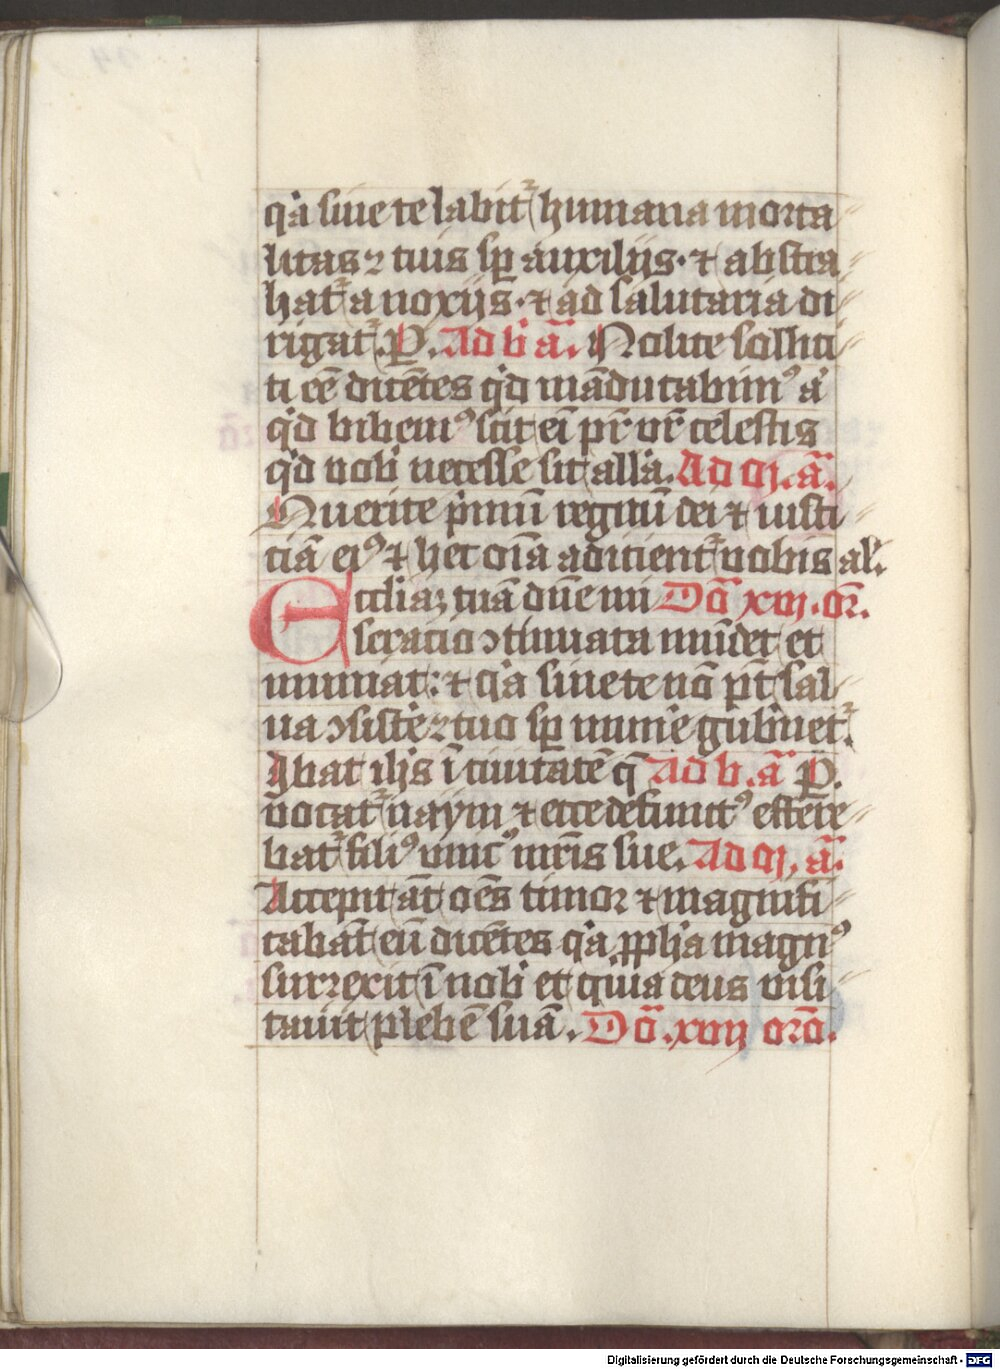 q̇a sine te labit᷑ humana morta
litas ⁊ tuis sꝑ auxilijs · ⁊ abstra
hat᷑ a noxijs · ⁊ ad salutaria di
rigat᷑. P. Ad b̄ ā. Nolite sollici
ti eē dicētes q̇d māducabimꝰ a̍
q̇d bibemꝰ scit eī pr̄ vr̄ celestis
q̇d nob̄ necesse sit alla̍. Ad m. ā.
Querite p̍mū regnū dei ⁊ iusti
ciā eiꝰ ⁊ hec oīa adicient᷑ vobis al̍.
Ecclīaꝫ tuā dn̄e mi Dō xv. or̄.
seracio ↄtinuata mūdet et
muniat: ⁊ q̇a sine te nō pt̄ sal
ua ↄsiste̍ ⁊ tuo sꝑ mune̍ gub̄net᷑.
Ibat ih̄s ī ciuitatē q̄ Ad b. ā P.
vocat᷑ naym ⁊ ecce defunctꝰ effere
bat᷑ filiꝰ vnicꝰ mr̄is sue. Ad m. ā.
Accepit āt oēs timor ⁊ magnifi
cabāt eū dicētes q̇a ꝓpha magnꝰ
surrexit ī nob̄ et quia deus visi
tauit plebē suā. Dō. xvi oro̅.
Digitalisierung gefördert durch die Deutsche Forschungsgemeinschaft - DFG